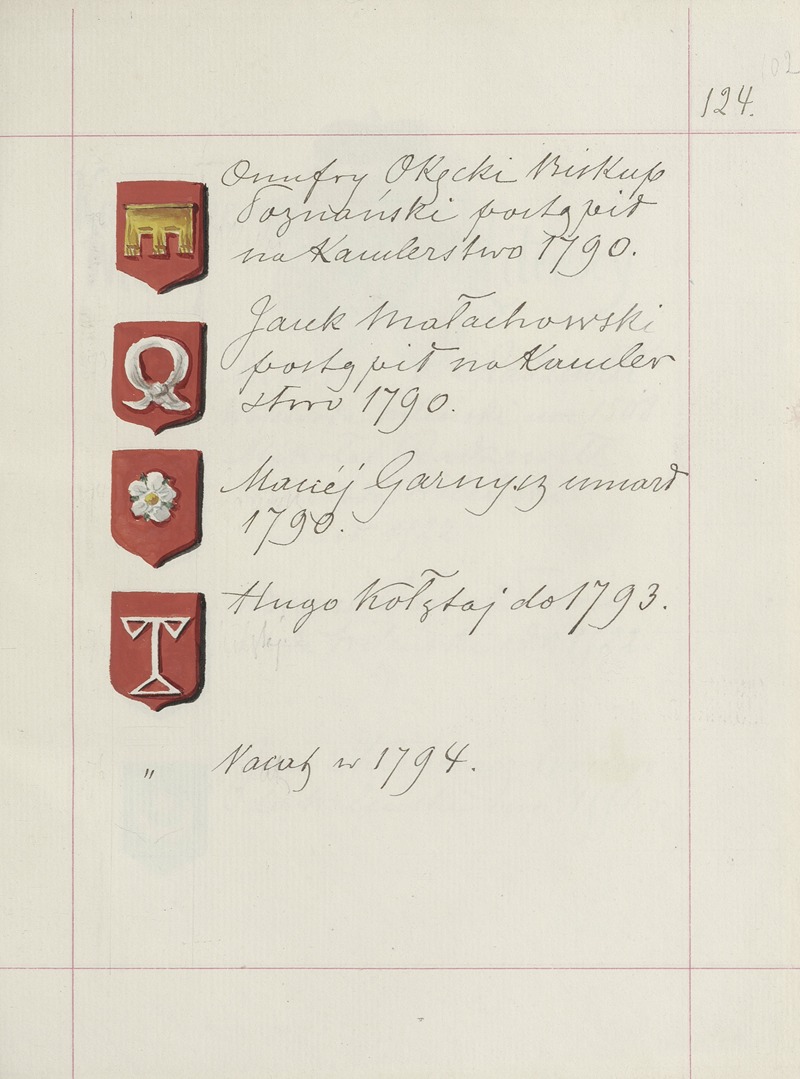 102
124.
Onufry Okęcki Biskup
Poznański postąpił
na Kanclerstwo 1790.
Jacek Małachowski
postąpił na Kancler
stwo 1790.
Maciéj Garnysz umarł
1790.
Hugo Kołłątaj do 1793.
" Vacat w 1794.